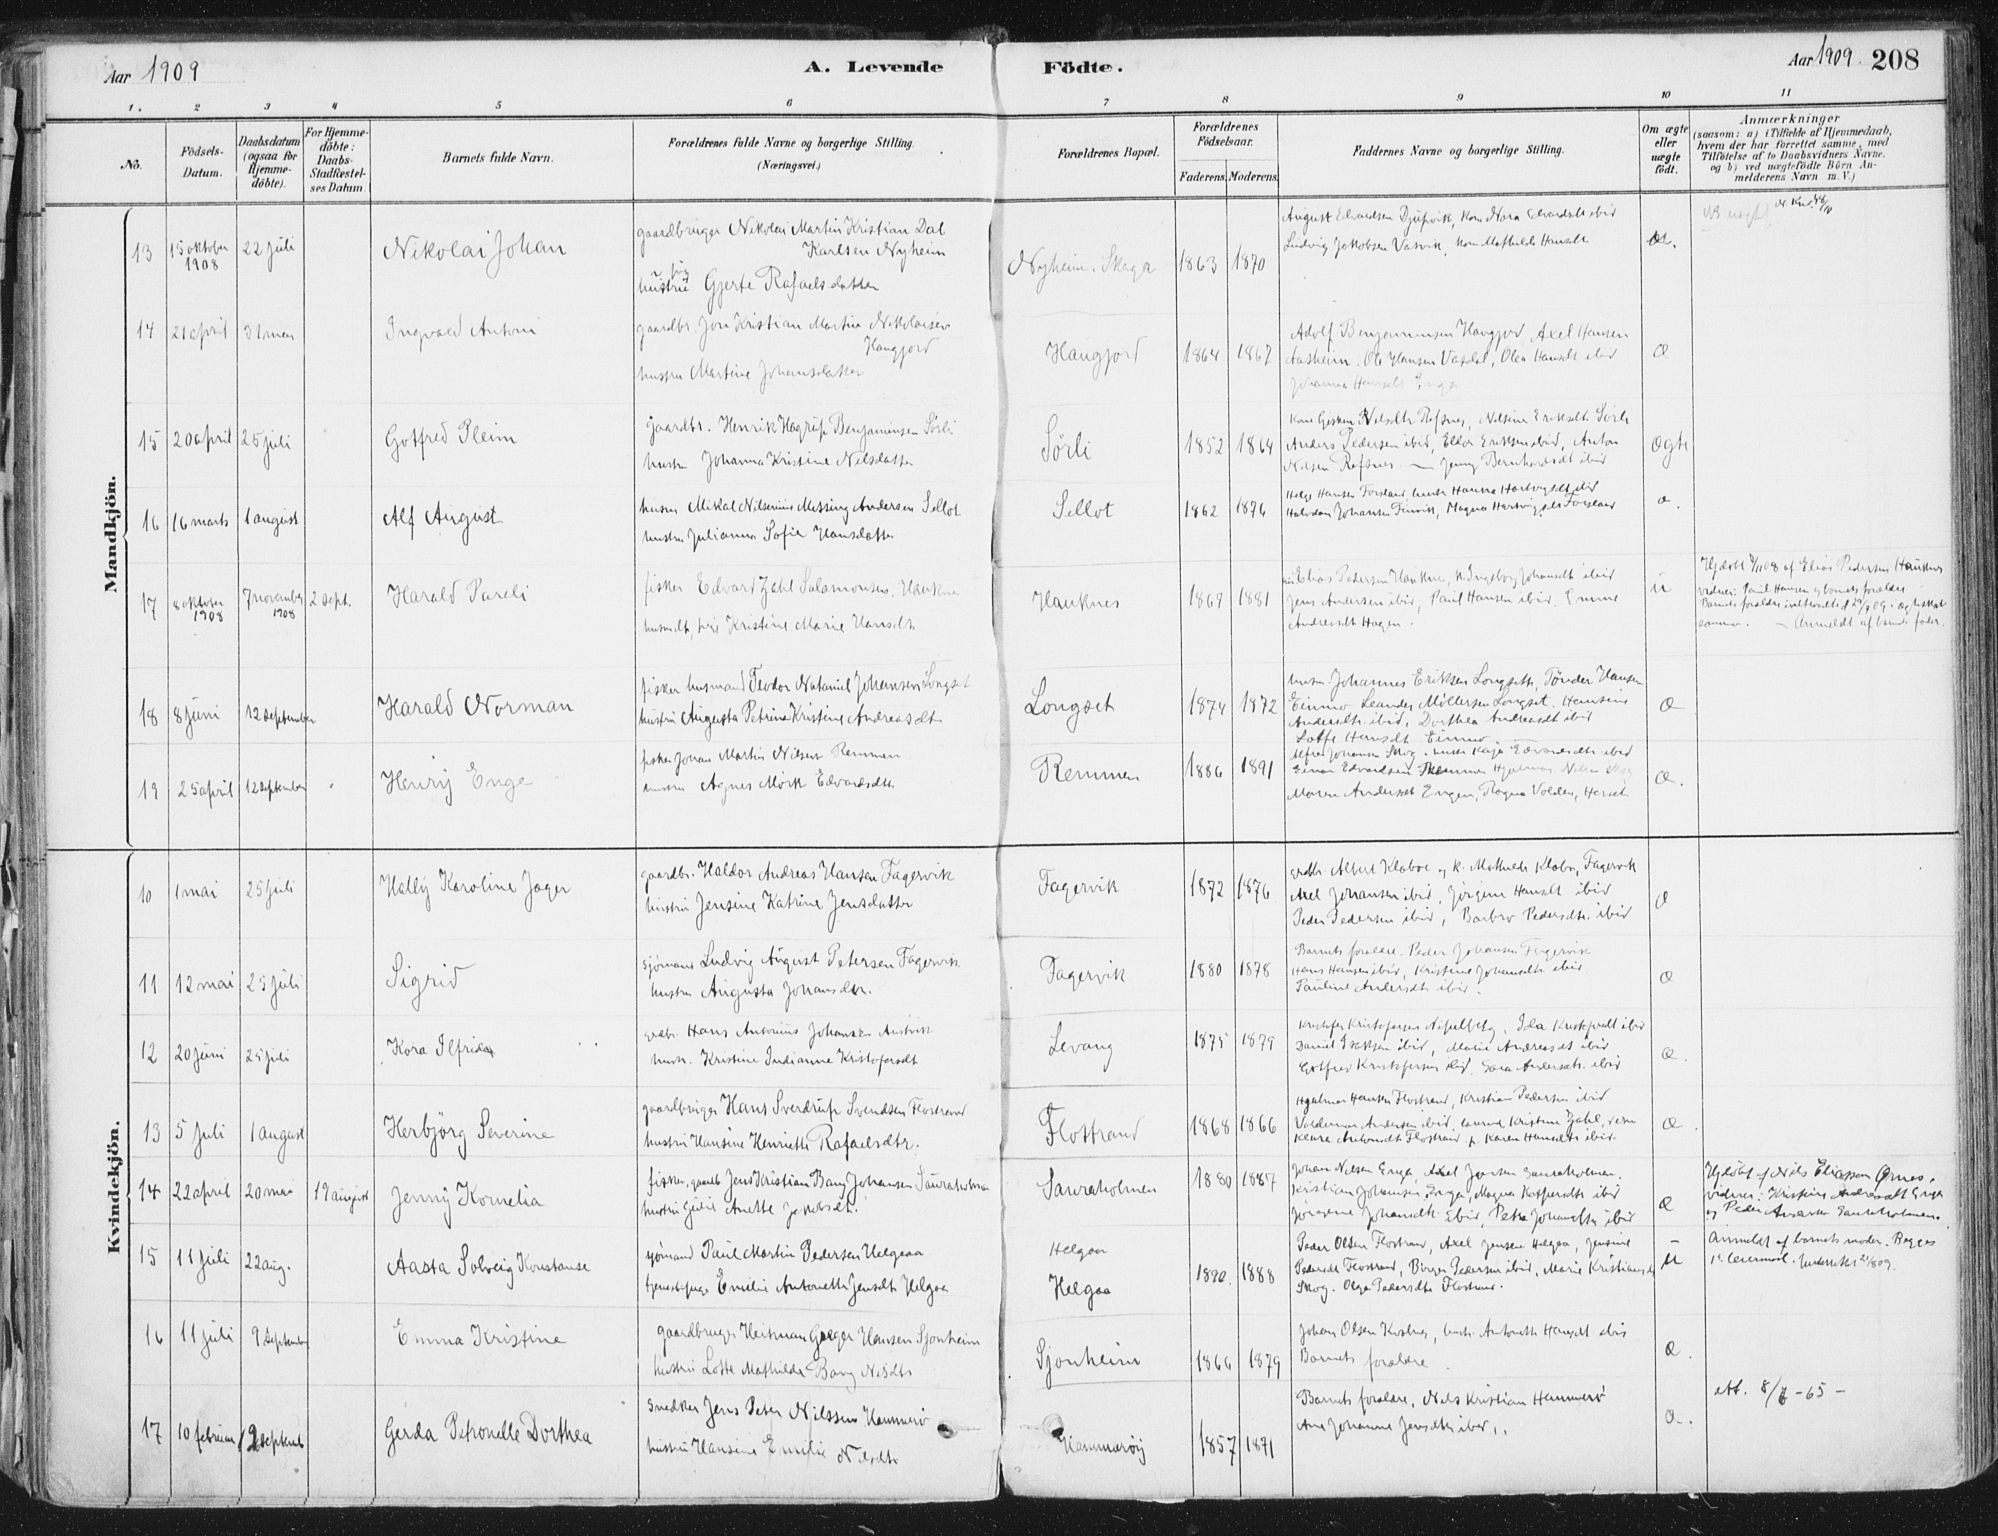 Aar 1909
A. Levende Födte.
Aar 1909. 208
1. 2 3 4 5 6 7 8 9 10 11
No.
Födsels-Datum.
Daabsdatum (ogsaa for Hjemme-döbte).
For Hjemme-döbte: Daabs-Stadfæstel-ses Datum.
Barnets fulde Navn.
Forældrenes fulde Navne og borgerlige Stilling. (Næringsvei.)
Forældrenes Bopæl.
Forældrenes Födselsaar.
Faderens. Moderens.
Faddernes Navne og borgerlige Stilling.
Om ægte eller uægte födt.
Anmærkninger
(saasom: a) i Tilfælde af Hjemmedaab, hvem der har forrettet samme, med Tilföielse af to Daabsvidners Navne, og b) ved uægtefödte Börn An-melderens Navn m. V.)
Mandkjön.
13 15 oktober 1908 22 juli Nikolai Johan
gaardbruger Nikolai Martin Kristian Dal
Karlsen Nyheim
hustru Gjerte Rafaelsdatter
Nyheim 1863 1870
August Edvardsen Djupvik, kone Nora Edvardsdt ibid
Ludvig Jakobsen Vasvik, kone Mathilde Hansdt
æ.
14 21 april 31 mai Ingvald Antoni
gaardbr. Jon Kristian Martin Nikolaisen
Haugjord
hustru Martine Johansdatter
Haugjord 1864 1867
Adolf Benjaminsen Haugjord, Axel Hansen
Aasheim, Ole Hansen Vasdal, Olea Hansdt ibid
Johanna Hansdt Enga
æ
15 20 april 25 juli Gotfred Pleim
gaardbr. Henrik Hagrup Benjaminsen Sörli
hustru Johanna Kristine Nilsdatter
Sörli 1852 1864
Nilsdt Refsnes, Nilsine Eriksdt Sörli
Anders Pedersen ibid, Eriksen ibid, Anton
Nilsen Refsnes. — Jenny Bernhardsdt ibid
ægte
16 16 marts 1 august Alf August
husm Mikal Nilsenius Messing Andersen Sellot
hustru Julianna Sofie Hansdatter
Sellot 1862 1876
Helge Hansen Forsland, hustr Hanna Hartvigsdt ibid
Halvdan Johansen Finvik, Magna Hartvigsdt Forsland
æ.
17 8 oktober 1908 7 november 1908 2 sept. Harald Pareli
fisker Edvard Zahl Salamonsen, Haukne
Kristine Marie Hansdt
Hauknes 1869 1881
Elias Pedersen Haukne, k. Ingeborg Johansdt ibid
Jens Andersen ibid, Paul Hansen ibid, Emma
Andreasdt Hagen.
u
Hjdøbt 7/11 08 af Elias Pedersen Hauknes
vidner: Paul Hansen og barnets forældre
Anmeldt af barnets fader.
18 8 juni 12 september Harald Norman
fisker husmand Teodor Nataniel Johansen Longset
hustru Augusta Petrine Kristine Andreasdt
Longset 1874 1872
husm. Johannes Eriksen Longseth, Tönder Hansen
Einmo Leander Möllersen Longset, Hansine
Andersdt. ibid, Dorthea Andreasdt ibid
Lotte Hansdt Einmo
æ
19 25 april 12 september Henry Enge
fisker Johan Martin Nilsen Remmen
hustru Agnes Mörk Edvardsdtr
Remmen 1886 1891
Alfred Johansen Skog, hustr Kaja Edvardsdtr ibid
Einar Edvardsen Remmen Hjalmar Nilsen Skog
Maren Andersdt Engen, Ragna Volden, Herset
æ.
Kvindekjön.
10 1 mai 25 juli Hally Karoline Jager
gaardbr. Haldor Andreas Hansen Fagervik
hustru Jensine Katrine Jensdatter
Fagervik 1872 1876
grdbr Albert Klaboe og k. Mathilde Klabo, Fagervik
Axel Johansen ibid, Jörgine Hansdt ibid
Peder Pedersen ibid, Barbro Pedersdtr. ibid
æ
11 12 mai 25 juli Sigrid
sjömand Ludvig August Petersen Fagervik
hustru Augusta Johansdtr.
Fagervik 1880 1878
Barnets forældre. Peder Johansen Fagervik
Hans Hansen ibid, Kristine Johansdtr ibid
Pauline Andersdtr ibid.
æ
12 20 juni 25 juli Kora Ilfrida
grdbr. Hans Antonius Johansen Austvik
hustr. Kristine Indianne Kristofersdt
Levang 1875 1879
Kristofer Kristofersen, Ida Kristofersdt ibid
Daniel Isaksen ibid, Marie Andreasdt ibid
Gotfred Kristofersen ibid. Sara Andersdt. ibid
æ.
13 5 juli 1 august Herbjörg Severine
gaardbruger Hans Sverdrup Svendsen Flostrand
hustru Hansine Henriette Rafaelsdtr.
Flostrand 1868 1866
Hjalmar Hansen Flostrand, Kristian Pedersen ibid
Voldemar Andersen ibid, Kristine Zahl,
Klara Antonsdt Flostrand p. Karen Hansdtr ibid.
æ.
14 22 april 20 mai 19 august Jenny Kornelia
fisker, gaardb Jens Kristian Bang Johansen Sauraholmen
hustru Julie Anette Jakobsdt.
Sauraholmen 1880 1887
Johan Nilsen Enga, Axel Jensen Sauraholmen,
Kristian Johansen, Enga, Magna ibid
Johansdt. ibid, Petra Johansdtr ibid
æ
Hjdöbt af Nils Eliassen Ørnes.
vidner: Kristine Andreasdt Enga
og Peder Andersen Sauraholmen.
15 11 juli 22 aug. Aasta Solveig Konstanse
sjömand Paul Martin Pedersen Helgaa
tjenestepige Emilie Antonette Jensdtr Helgaa
Helgaa
Helgaa 1890. 1888
Peder Olsen Flostrand, Axel Jensen Helgaa, Jensine
Pedersdt Flostrand, Börge Pedersen ibid, Marie Kristiansdt
Skog. Olga Pedersdtr Flostrand.
—
u
Anmeldt af barnets moder. Begges
1e leiermaal.
16 11 juli 9 september Emma Kristine
gaardbruger Heitman Gæger Hansen Sjonheim
hustru Lotte Mathilde Bang Nilsdtr
Sjonheim 1866 1879
Johan Olsen, hustr. Antonette Hansdt ibid
Barnets forældre.
æ.
17 10 februar 12 septemb Gerda Petronelle Dorthea
Snedker Jens Peter Nilssen Hammerö
hustru Hansine Emilie Nilsdtr
Hammeröy 1857 1871
Barnets forældre, Nils Kristian Hammerö
Ane Johanne Jensdtr ibid.
æ.
att. 8/7 -65-